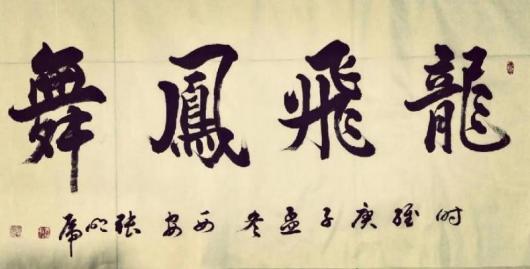 龍飛鳳舞
時經庚子孟冬西安張心虎